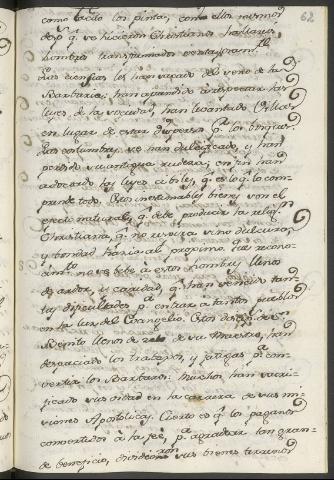 62
como Tacito los pinta, como ellos mismos
desp.s q.e se hicieron Christianos hallaron
hombres transformados ventajosam.te
Las ciencias los han sacado del seno de la
Barbarie; han aprendido à respectar las
leyes de la sociedad, han levantado Villas
en lugar de estar dispersos p.r los bosques.
Las costumbres se han delicado, y han
perdido su antigua rudeza; en fin han
adoptado las leyes cibiles, q.e es lo q.e lo com-
prende todo. Estos inestimables bienes son el
efecto natural q.e debe producir la relig.n
Christiana, q.e no respira sino dulzura,
y bondad hacia el proximo. El recono-
cim.to se debe à estos hombres llenos
de ardor, y caridad, q.e han vencido tan-
tas dificultades p.a entrar a tantos pueblos
en la luz del Evangelio. Los de S.n
Benito llenos de zelo de su Maestro, han
despreciado los trabajos, y fatigas p.a com-
vertir los Barbaros. Muchos han sacri-
ficado sus vidas en la carrera de sus mi-
siones Apostolicas. Cierto es q.e los paganos
convertidos à la fee, p.a agradecer tan gran-
de beneficio, dividieron sus bienes terrenos